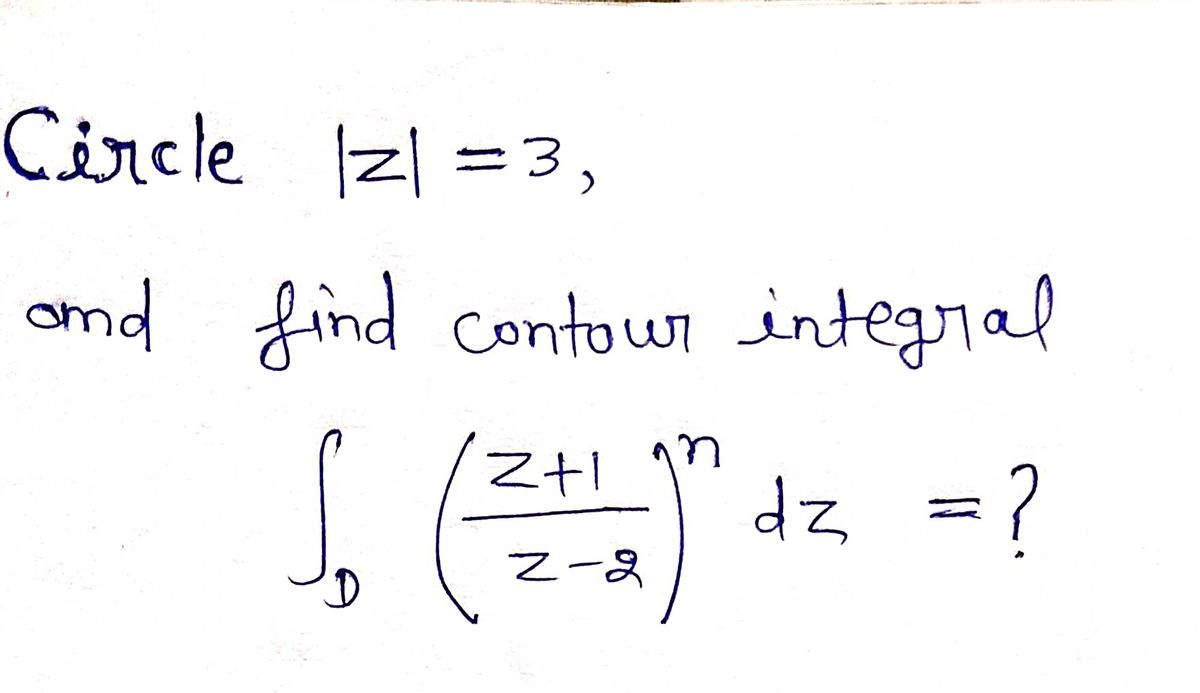 Circle |z| = 3,
and find contour integral
∫_D ((z+1)/(z-2))^n dz = ?